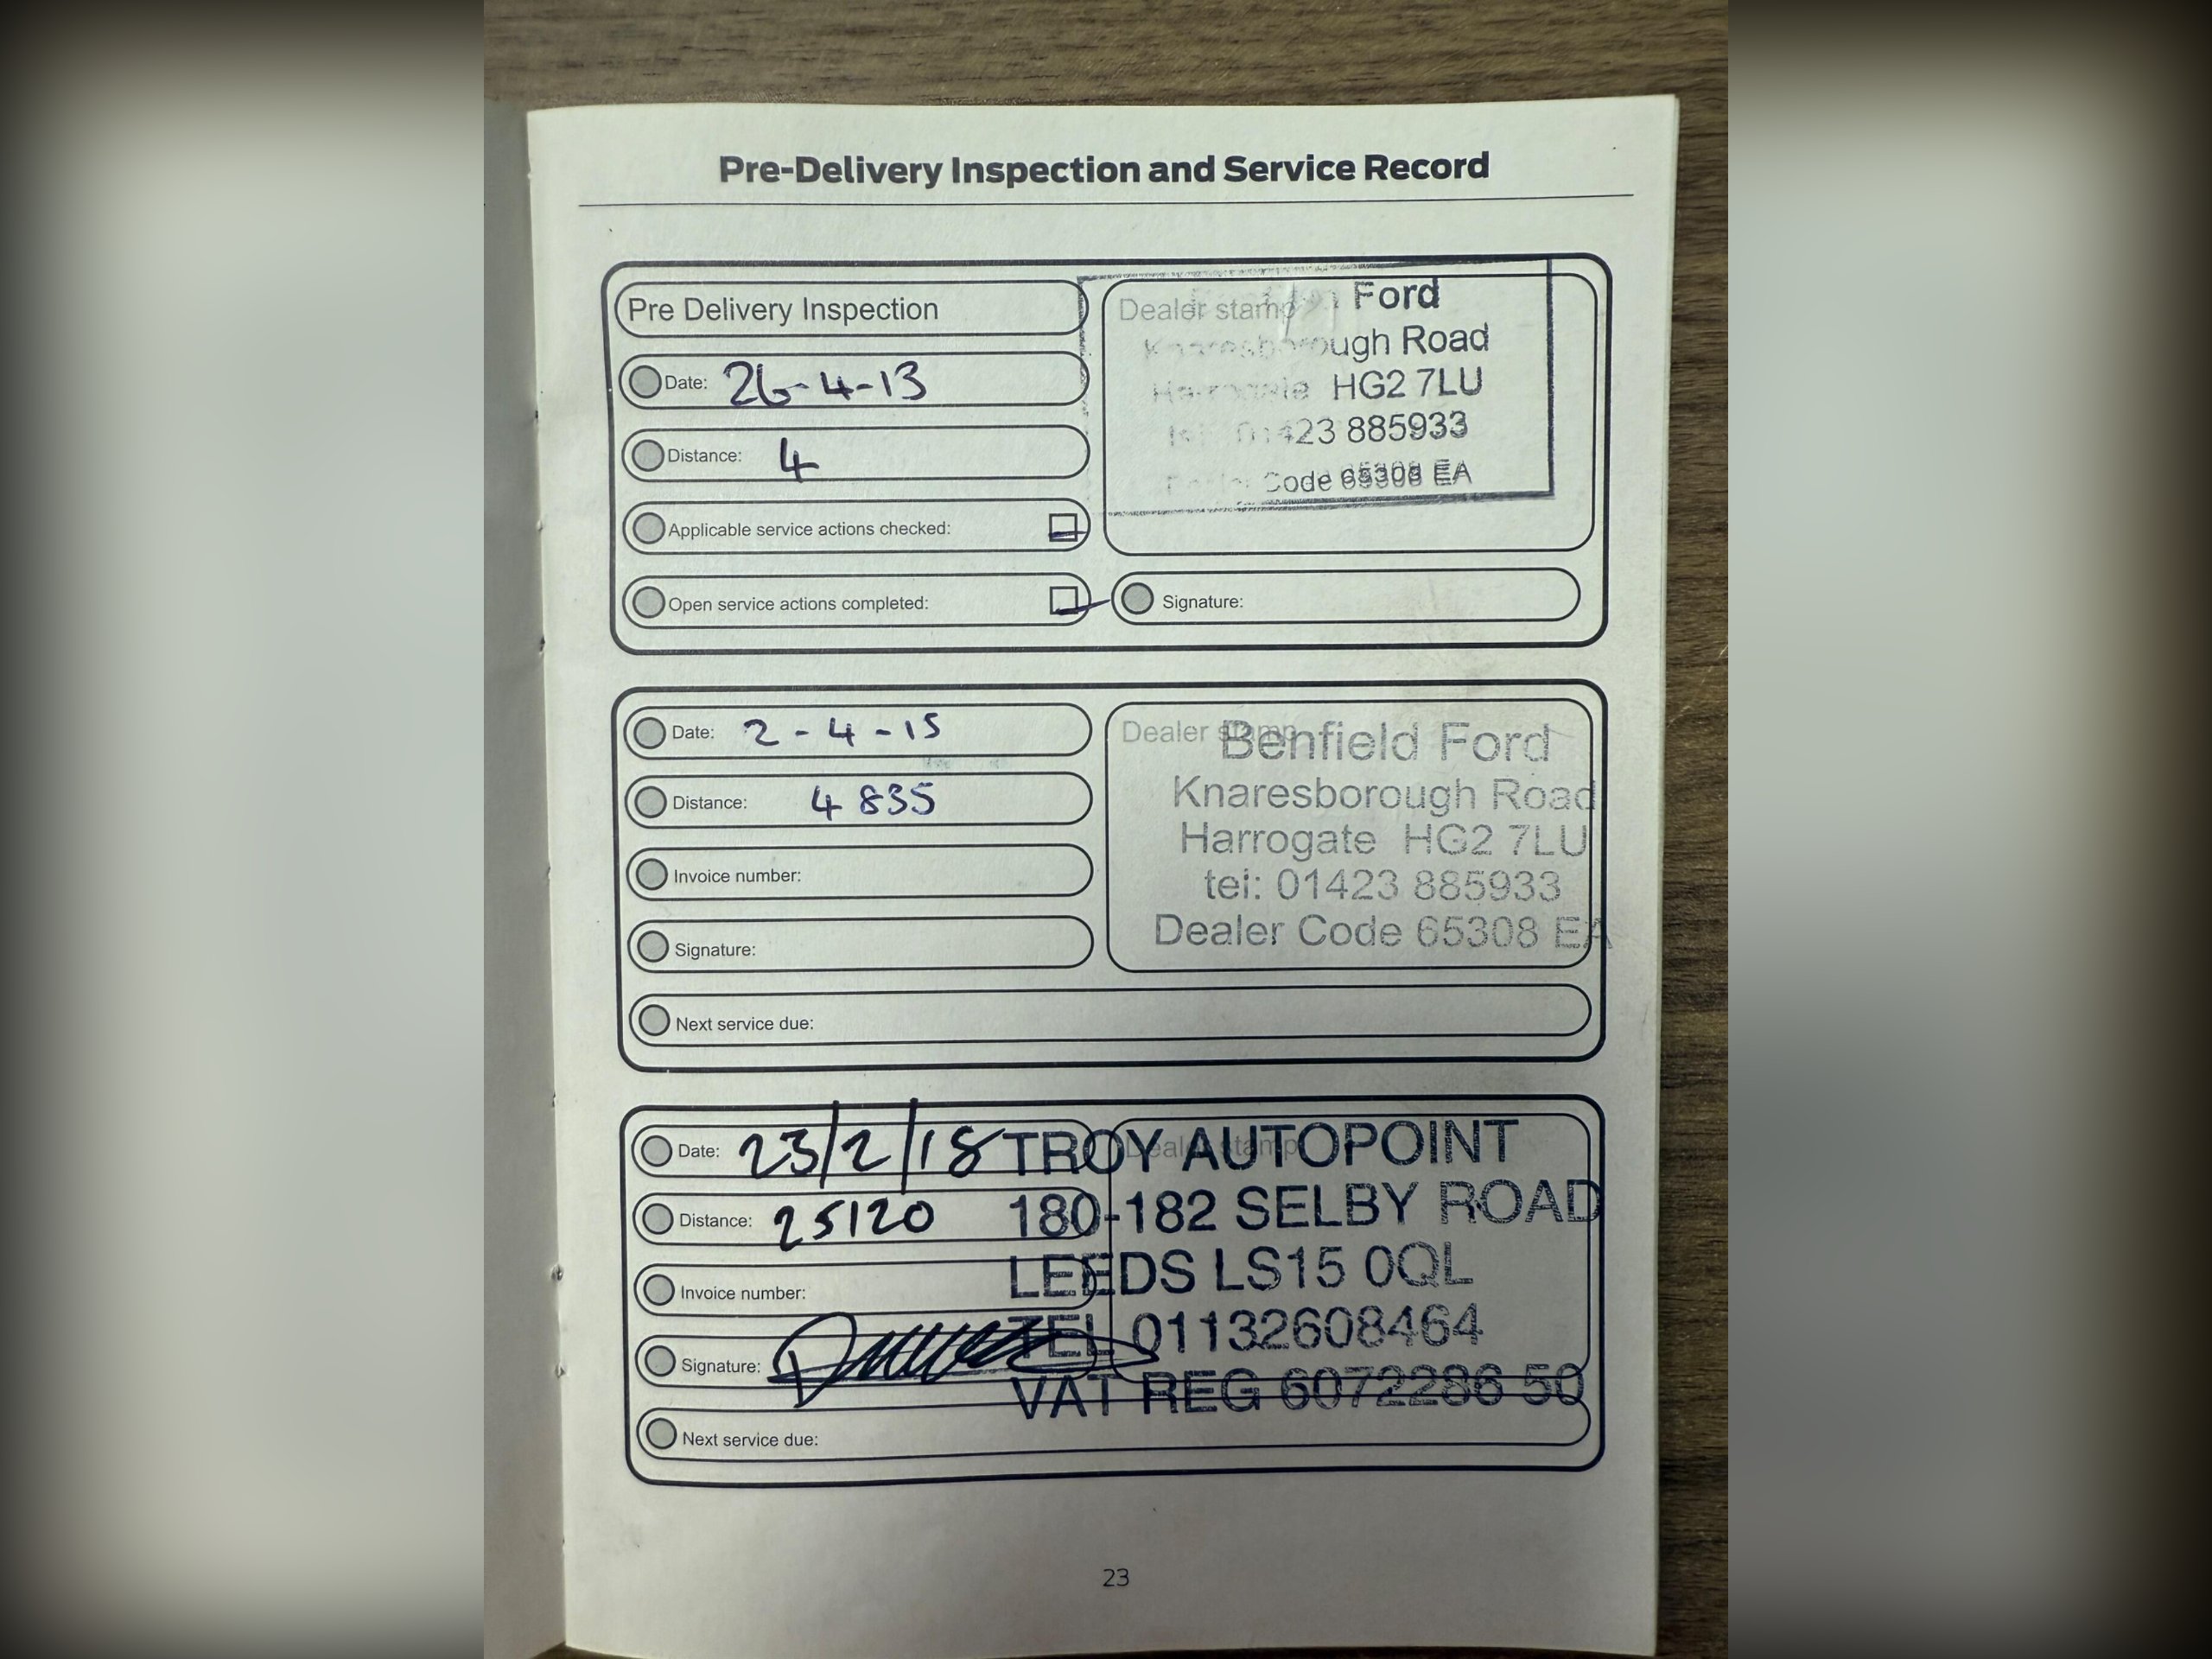 Pre-Delivery Inspection and Service Record
Pre Delivery Inspection
Date: 26-4-13
Distance: 4
Applicable service actions checked:
Open service actions completed:
Dealer stamp
Ford
Knaresborough Road
Harrogate HG2 7LU
tel: 01423 885933
Dealer Code 65308 EA
Signature:
Date: 2-4-15
Distance: 4835
Invoice number:
Signature:
Next service due:
Dealer stamp
Benfield Ford
Knaresborough Road
Harrogate HG2 7LU
tel: 01423 885933
Dealer Code 65308 EA
Date: 23/2/18
Distance: 25120
Invoice number:
Signature:
Next service due:
Dealer stamp
TROY AUTOPOINT
180-182 SELBY ROAD
LEEDS LS15 0QL
TEL 01132608464
VAT REG 6072286 50
23